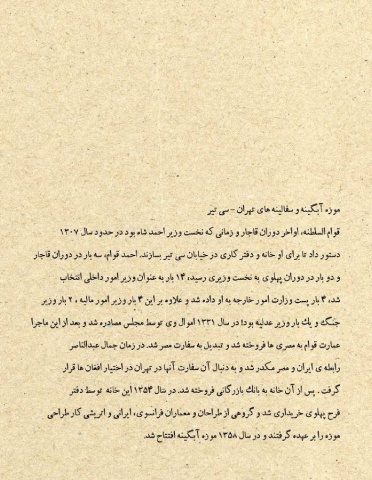 موزه آبگینه و سفالینه های تهران - سی تیر
قوام السلطنه، اواخر دوران قاجار و زمانی که نخست وزیر احمد شاه بود در حدود سال ۱۳۰۷
دستور داد تا برای او خانه و دفتر کاری در خیابان سی تیر بسازند. احمد قوام، سه بار در دوران قاجار
و دو بار در دوران پهلوی به نخست وزیری رسید، ۱۴ بار به عنوان وزیر امور داخلی انتخاب
شد، ۴ بار پست وزارت امور خارجه به او داده شد و علاوه بر این ۴ بار وزیر امور مالیه ، ۲ بار وزیر
جنگ و یك بار وزیر عدلیه بود! در سال ۱۳۳۱ اموال وی توسط مجلس مصادره شد و بعد از این ماجرا
عمارت قوام به مصری ها فروخته شد و تبدیل به سفارت مصر شد. در زمان جمال عبدالناصر
رابطه ی ایران و مصر مکدر شد و به دنبال آن سفارت آنها در تهران در اختیار افغان ها قرار
گرفت . پس از آن خانه به بانك بازرگانی فروخته شد. در سال ۱۳۵۴ این خانه توسط دفتر
فرح پهلوی خریداری شد و گروهی از طراحان و معماران فرانسوی، ایرانی و اتریشی کار طراحی
موزه را بر عهده گرفتند و در سال ۱۳۵۸ موزه آبگینه افتتاح شد.